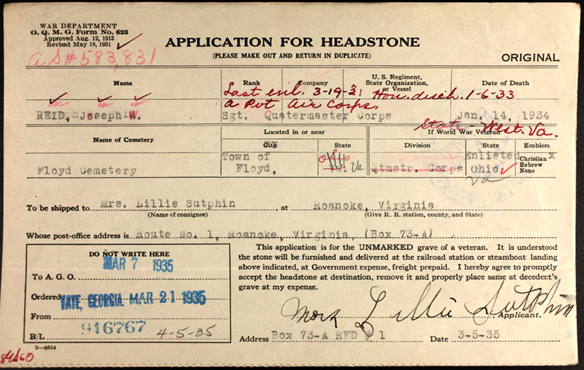 WAR DEPARTMENT
O. Q. M. G. Form No. 623
Approved Aug. 12, 1913
Revised May 18, 1931
A S# 583,831
APPLICATION FOR HEADSTONE
(PLEASE MAKE OUT AND RETURN IN DUPLICATE)
ORIGINAL
Name Rank Company U. S. Regiment, State Organization, or Vessel Date of Death
Last enl. 3-19-31 Hon. disch. 1-6-33
a Pvt Air Corps.
REID, Joseph W. Sgt. Quatermaster Corps Jan. 14, 1934
State - West. Va.
If World War Veteran
Name of Cemetery Located in or near City State Division State Emblem
Floyd Cemetery Town of Floyd, Va Qtmstr. Corps Enlisted Ohio Va x Christian Hebrew None
To be shipped to Mrs. Lillie Sutphin at Roanoke, Virginia
(Name of consignee) (Give R. R. station, county, and State)
Whose post-office address is Route No. 1, Roanoke, Virginia, (Box 73-A)
DO NOT WRITE HERE
MAR 7 1935
To A. G. O.
Ordered
TATE, GEORGIA. MAR 21 1935
916767
B/L 4-5-35
This application is for the UNMARKED grave of a veteran. It is understood
the stone will be furnished and delivered at the railroad station or steamboat landing
above indicated, at Government expense, freight prepaid. I hereby agree to promptly
accept the headstone at destination, remove it and properly place same at decedent's
grave at my expense.
Mrs Lillie Sutphin
Applicant.
Address Box 73-A RFD # 1 Date 3-5-35